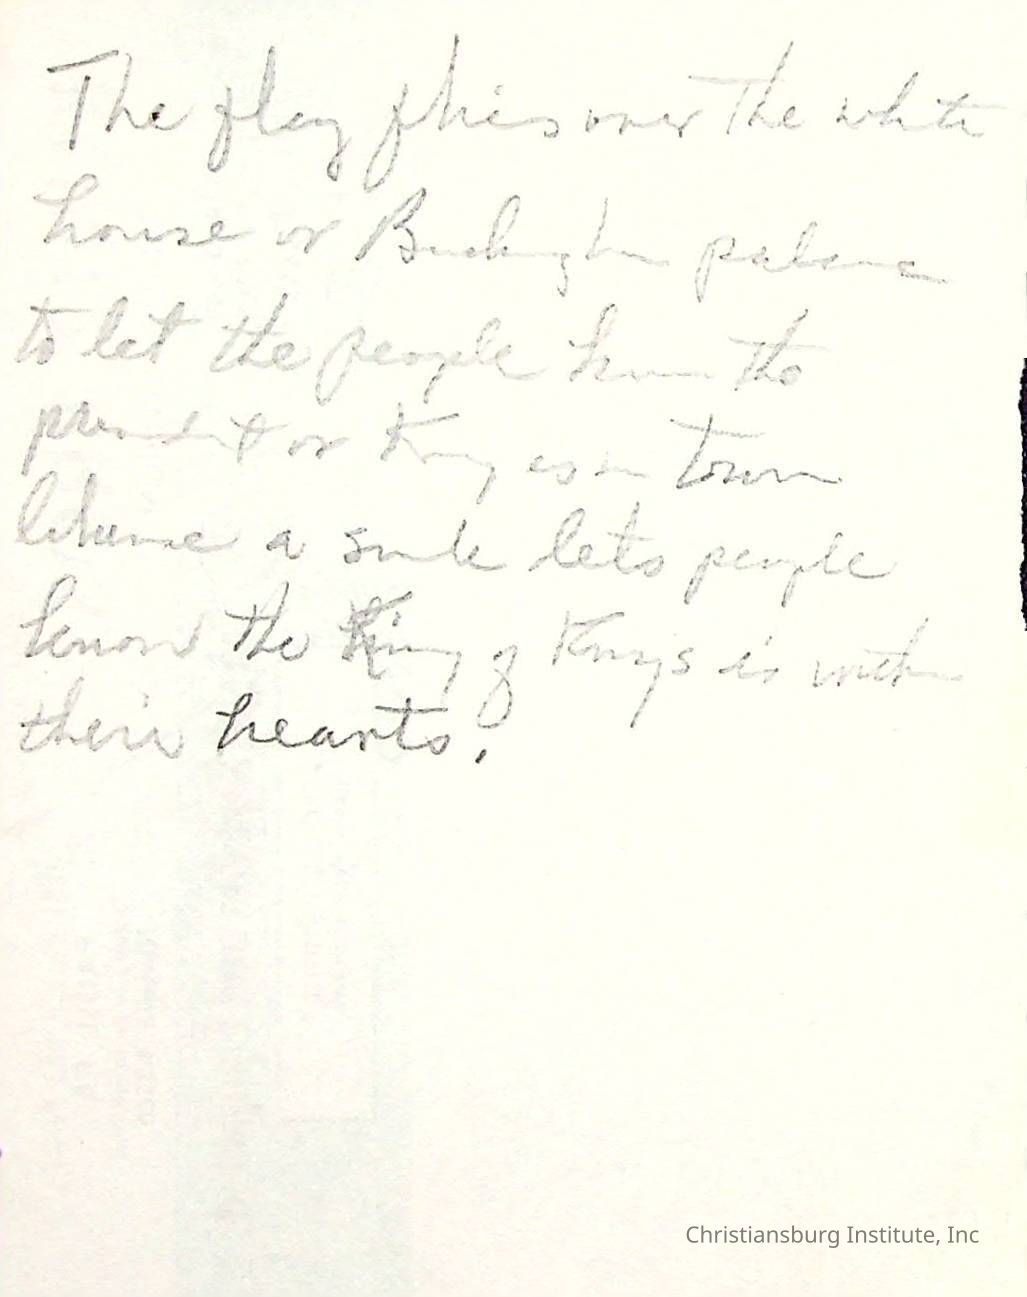 The flag flies over the white
house or Buckingham palace
to let the people know the
president or King is in town
likewise a smile lets people
know the King of Kings is within
their hearts.
Christiansburg Institute, Inc